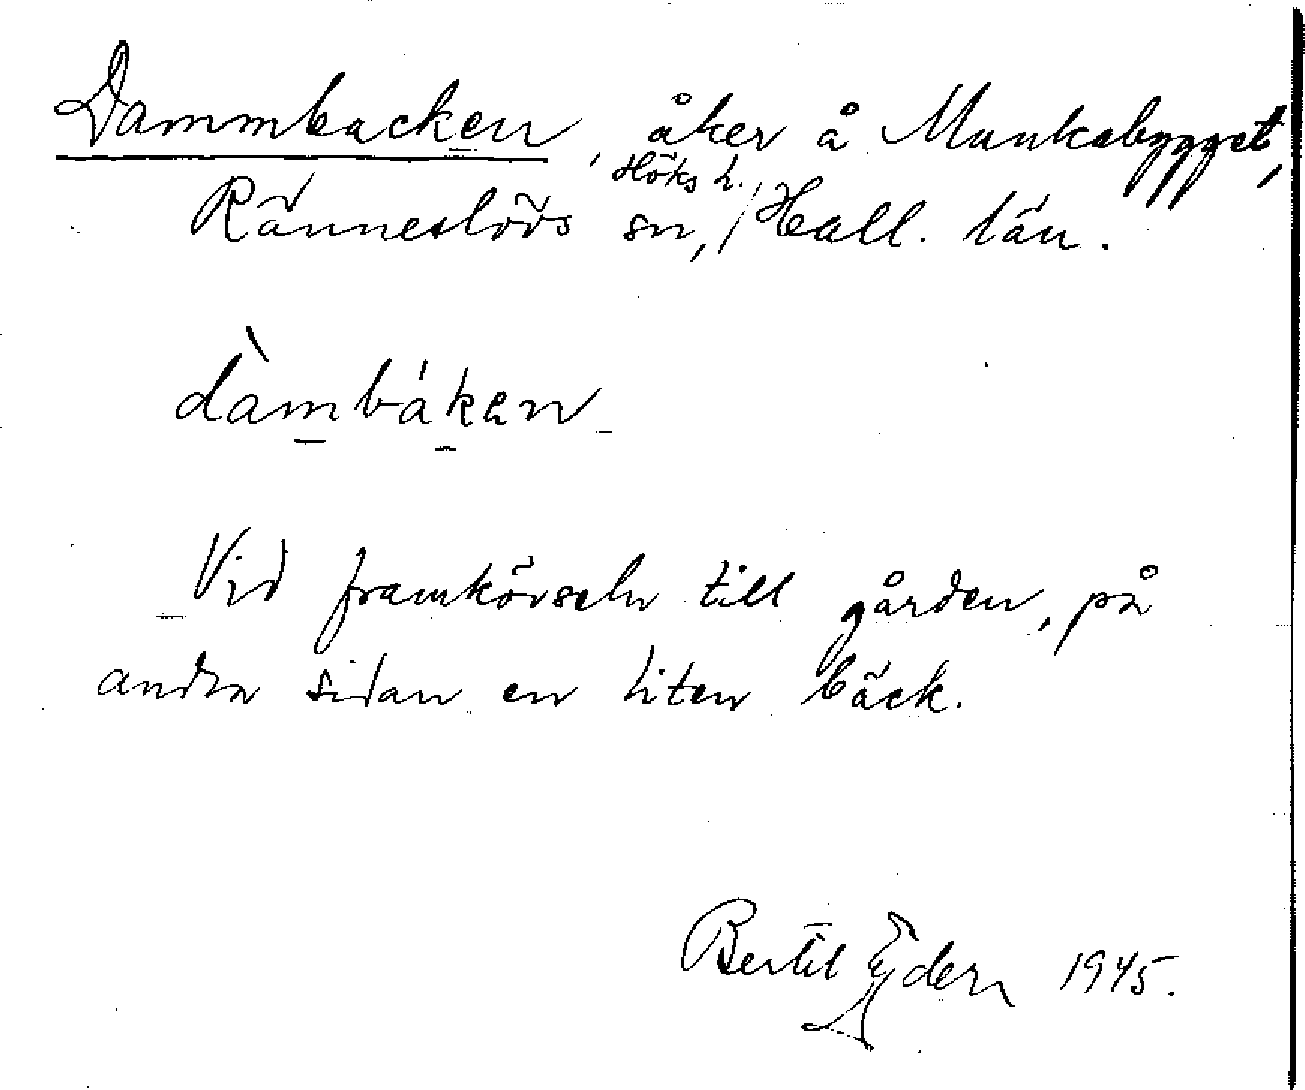 Dammbacken, åker å Munkabygget,
Höks h.
Ränneslövs sn, / Hall. län.
dàmbákan
Vid framkörseln till gården, på
andra sidan en liten bäck.
Bertil Ejder 1945.